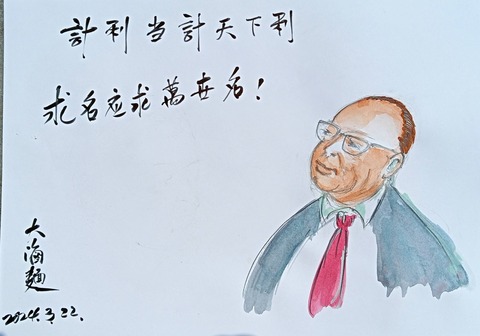 計利当計天下利
求名应求萬世名！
大海麵
2024.3.22.